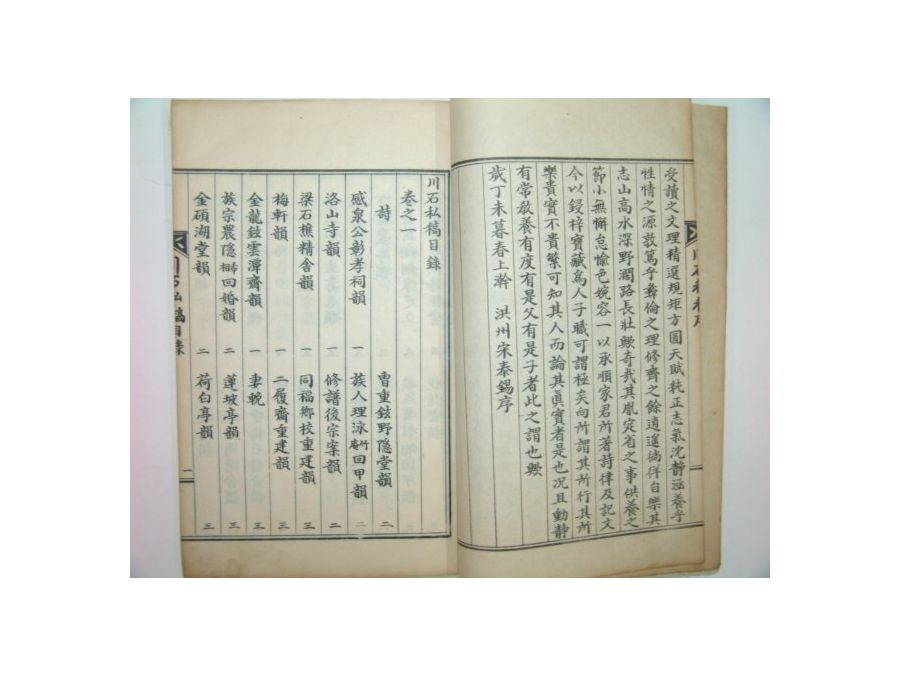 受讀之文理精選規矩方圓天賦秉正志氣沈靜涵養乎
性情之源敦篤乎彛倫之理修齊之餘逍遙徜徉自樂其
志山高水深野濶路長壯歟奇哉其胤定省之事供養之
節小無懈怠愉色婉容一以承順家君所著詩律及記文
今以鋟梓寶藏爲人子職可謂極矣向所謂其所行其所
樂貴實不貴繁可知其人而論其眞實者是也况且動靜
有常放養有度有是父有是子者此之謂也歟
歲丁未暮春上澣 洪州宋泰錫序
川石私稿目錄
卷之一
詩
曺重鉉野隱堂韻 二
感泉公彰孝祠韻 一
族人理泳竹庵回甲韻 二
洛山寺韻 一
修譜後宗案韻 二
梁石樵精舍韻 一
同福鄕校重建韻 三
梅軒韻 一
二履齋重建韻 三
金龍鉉雲潭齋韻 一
妻輓 三
族宗農隱 回婚韻 二
蓮坡亭韻 三
金碩湖堂韻 二
荷白亭韻 三
川石私稿目錄
一